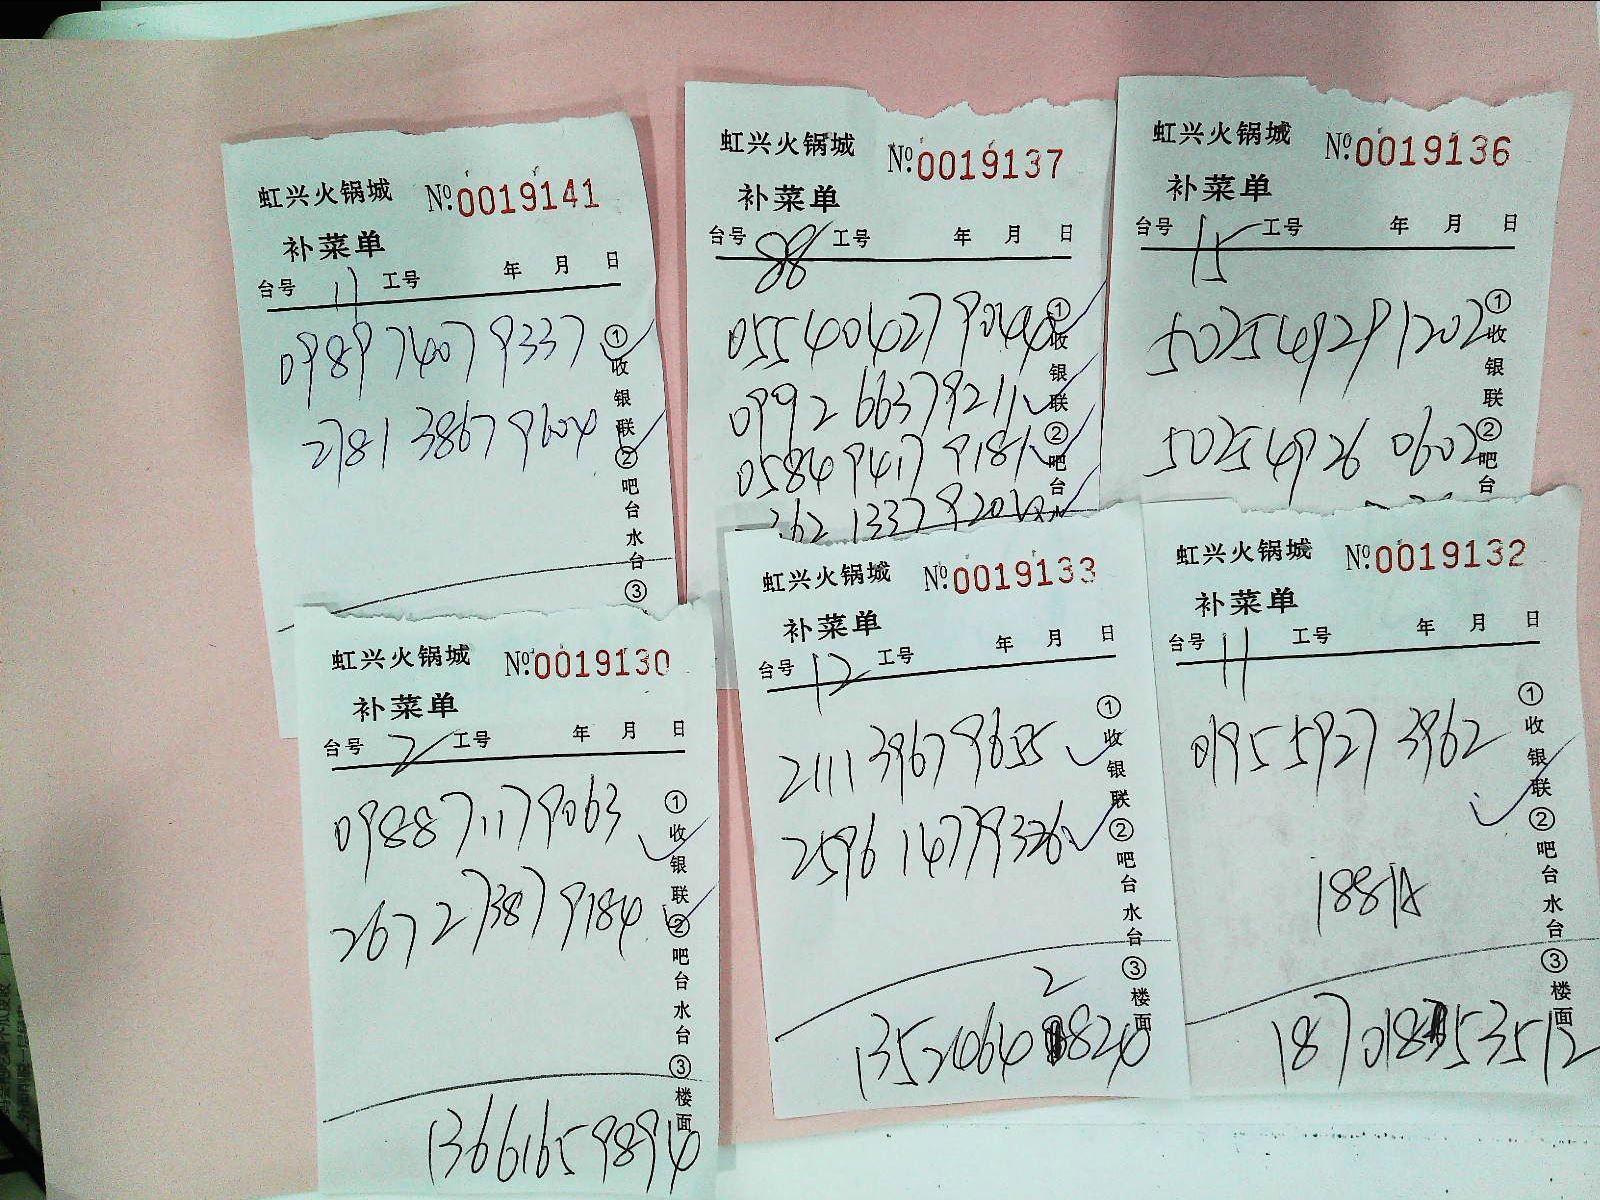 虹兴火锅城 №:0019141
补菜单
台号 11 工号 年 月 日
098974079337
278138679604
①收银联②吧台水台③
虹兴火锅城 №:0019137
补菜单
台号 88 工号 年 月 日
055404279044
099266379211
058494179181
①收银联②吧台水
虹兴火锅城 №:0019136
补菜单
台号 15 工号 年 月 日
502549291202
502549260602
①收银联②吧台
虹兴火锅城 №:0019130
补菜单
台号 2 工号 年 月 日
098871179063
267273879184
①收银联②吧台水台③楼面
13661659894
虹兴火锅城 №:0019133
补菜单
台号 12 工号 年 月 日
211139679655
259614779326
①收银联②吧台水台③楼面
2
虹兴火锅城 №:0019132
补菜单
台号 11 工号 年 月 日
019559273962
①收银联②吧台水台③楼面